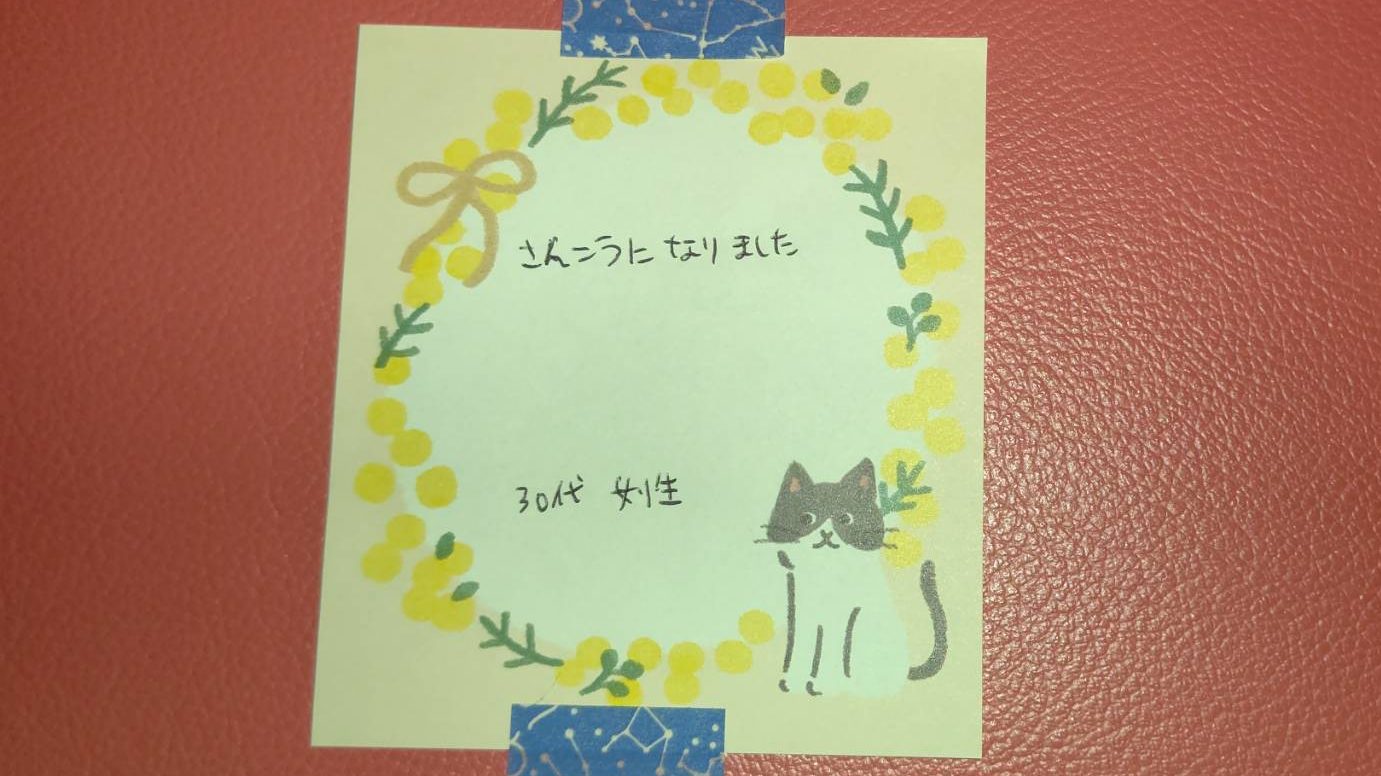 さんこうに なりました
30代 女性